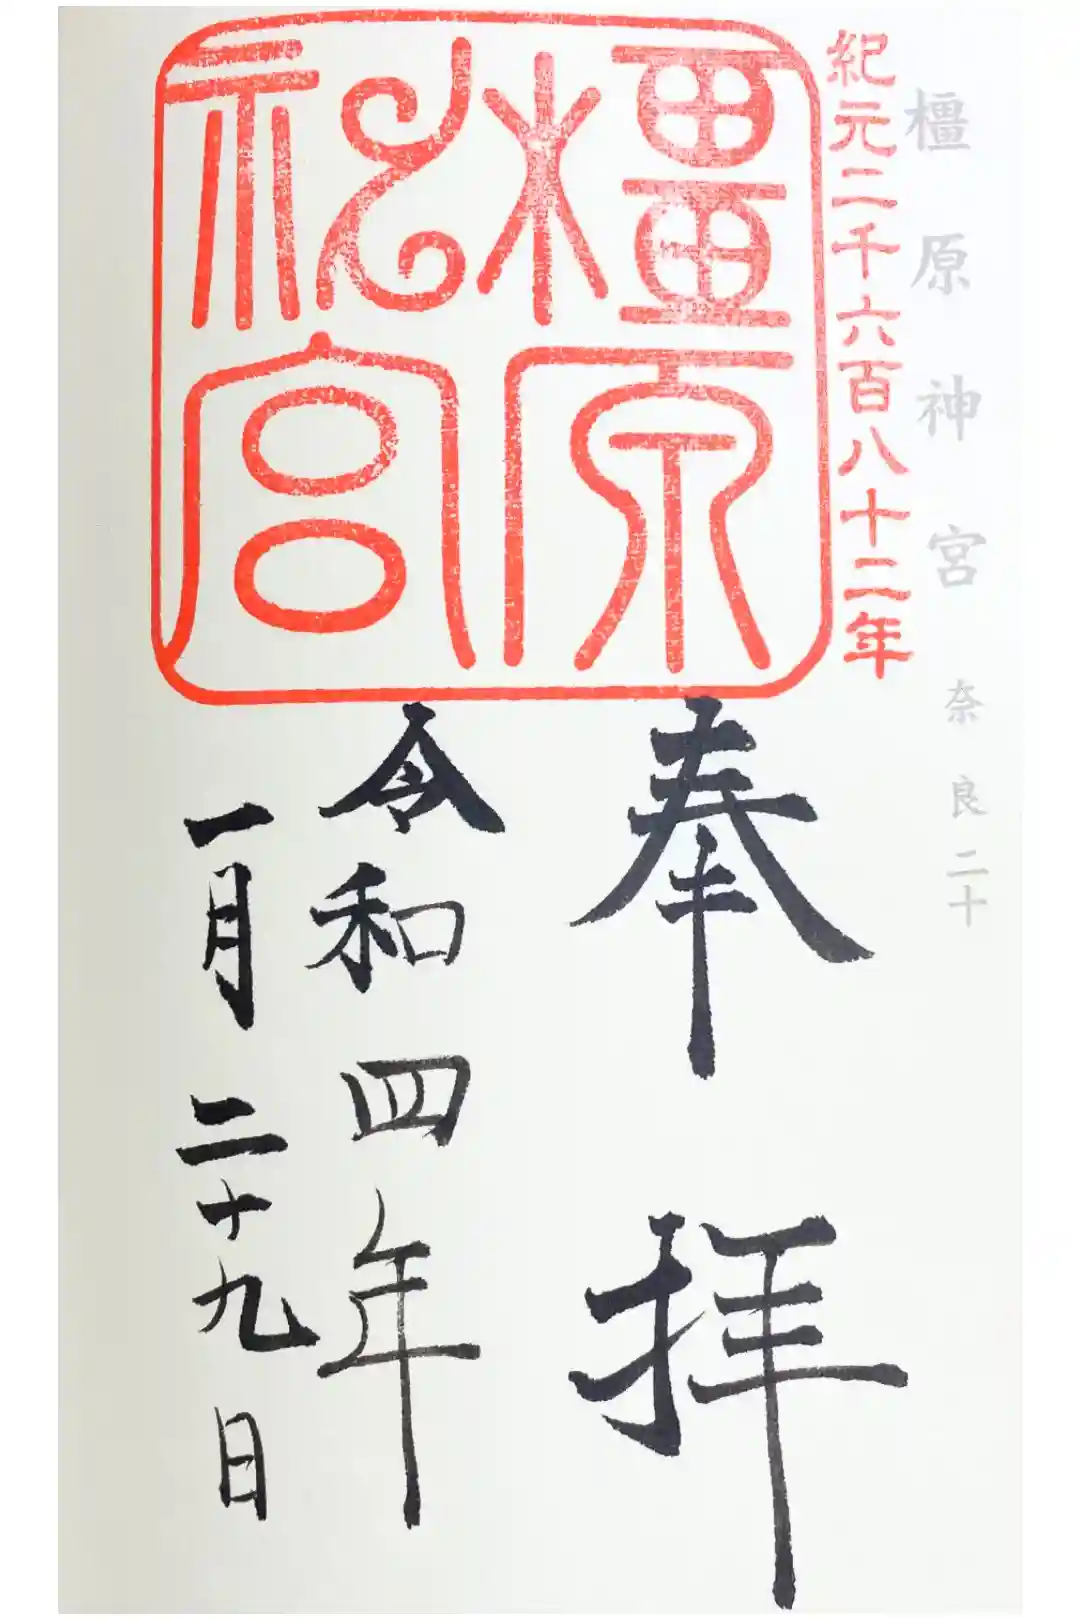 橿原神宮 奈良二十
紀元二千六百八十二年
橿原
神宮
奉拝
令和四年
一月二十九日